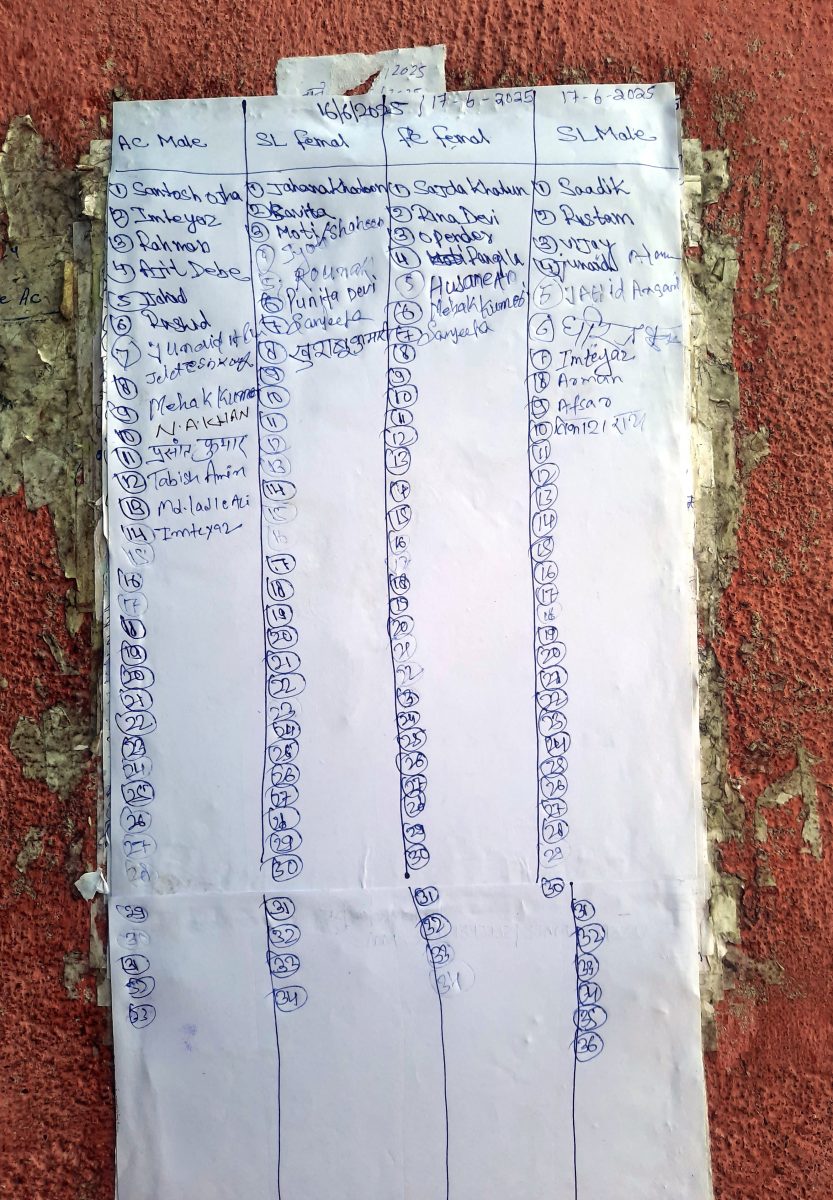 2025
16/6/2025 / 17-6-2025 17-6-2025
AC Male
① Santosh ojha
② Imteyaz
③ Rahman
④ Ajit Debe
⑤ Jahad
⑥ Rashid
⑦ Junaid
⑧
⑨ Mehak Kumar
⑩ N.A KHAN
⑪ प्रसांत कुमार
⑫ Tabish Amin
⑬ Md. Ladle Ali
⑭ Imteyaz
15
16
17
18
19
20
21
22
23
24
25
26
27
28
29
30
31
32
33
SL femal
① Jahana Khatoon
② Savita
③ Moti Shaheen
④ Jyoti
5 ROUNAK
⑥ Punita Devi
⑦ Sanjeeta
⑧ खुशबु कुमारी
9
10
11
12
13
14
15
16
17
18
19
20
21
22
23
24
25
26
27
28
29
30
31
32
33
34
femal
① Sajda Khatun
② Rina Devi
③ Opender
④ Pangla
⑤ Husane An
⑥ Mehak Kumari
⑦ Sanjeeta
8
9
10
11
12
13
14
15
16
17
18
19
20
21
22
23
24
25
26
27
28
29
30
31
32
33
34
SL Male
① Saadik
② Rustam
③ Vijay
④ Junaid Alam
⑤ JAHid Ansari
⑥
⑦ Imteyaz
⑧ Arman
⑨ Afsar
⑩ राय
11
12
13
14
15
16
17
18
19
20
21
22
23
24
25
26
27
28
29
30
31
32
33
34
35
36